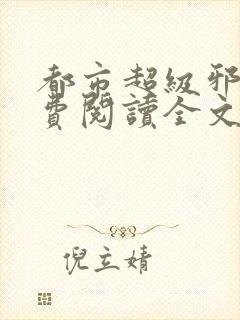 都市超級邪
費閱讀全文
倪立婧